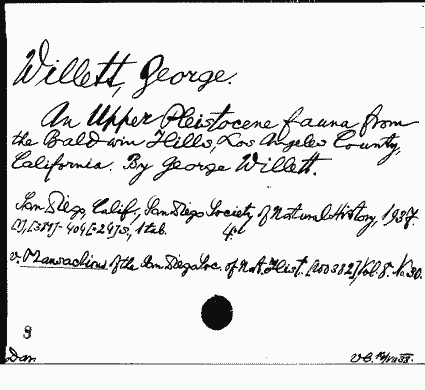 Willett, George.
An Upper Pleistocene fauna from
the Baldwin Hills, Los Angeles County,
California. By George Willett.
San Diego, Calif., San Diego Society of Natural History, 1937.
[1], [387]-406 [-29] p., 1 tab. 4°
v. Transactions of the San Diego Soc. of Nat. Hist. [200382], Vol. 8. No. 30.
8
Dan